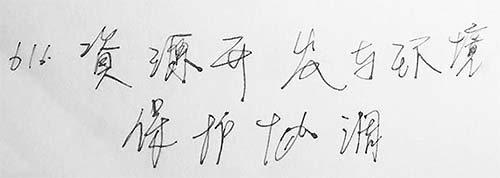 616. 資源开发与环境
保护协调